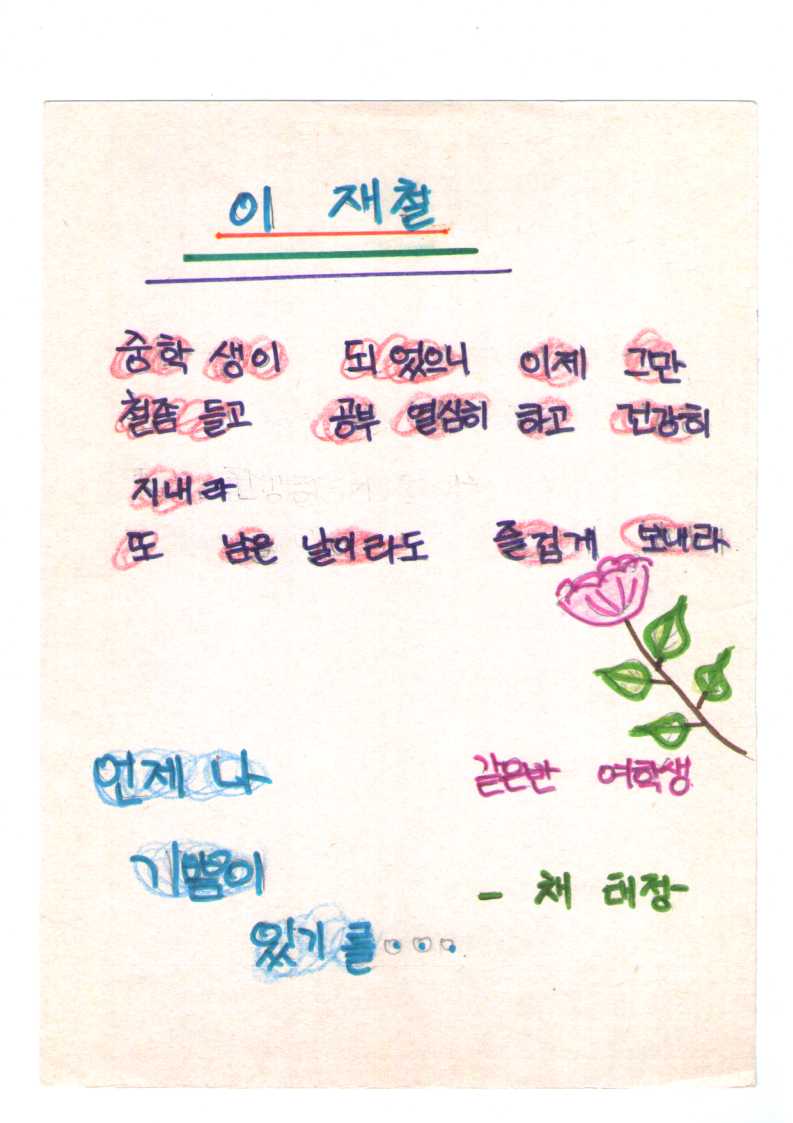 이 재철
중학생이 되었으니 이제 그만
철좀 들고 공부 열심히 하고 건강히
지내라
또 남은 날이라도 즐겁게 보내라
언제나
기쁨이
있기를...
같은반 여학생
- 채 태정 -